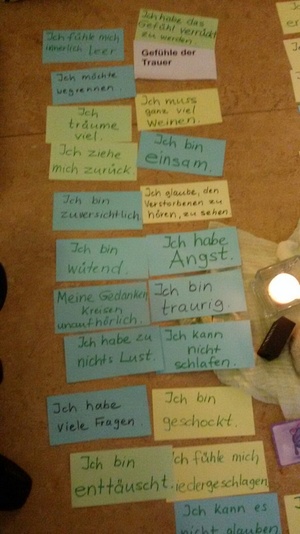 Ich fühle mich
innerlich leer
Ich habe das
Gefühl verrückt
zu werden.
Gefühle der
Trauer
Ich möchte
wegrennen
Ich muss
ganz viel
weinen.
Ich
träume
viel.
Ich bin
einsam.
Ich ziehe
mich zurück
Ich bin
zuversichtlich
Ich glaube, den
Verstorbenen zu
hören, zu sehen
Ich bin
wütend.
Ich habe
Angst.
Meine Gedanken
kreisen
unaufhörlich.
Ich bin
traurig.
Ich habe zu
nichts Lust.
Ich kann
nicht
schlafen.
Ich habe
viele Fragen.
Ich bin
geschockt.
Ich bin
enttäuscht.
Ich fühle mich
niedergeschlagen
Ich kann es
nicht glauben